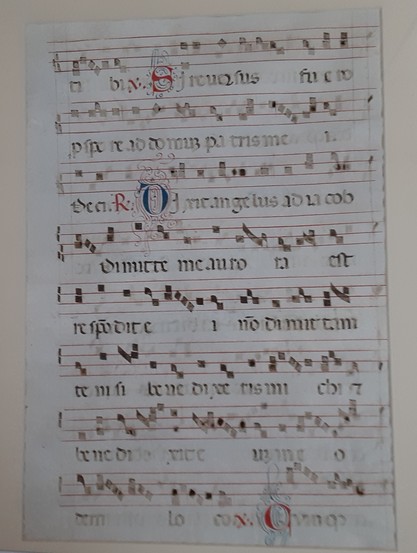 ti bi. V. Si reversus fu e ro
p spe re ad domum pa tris me i.
Deci. R. Dixit angelus ad ia cob
Dimitte me auro ra est
re spōdit e i nō dimittam
te ni si be ne dixe tis mi chi ⁊
be ne di xit e in me o
dem lo co V. Cumqꝫ